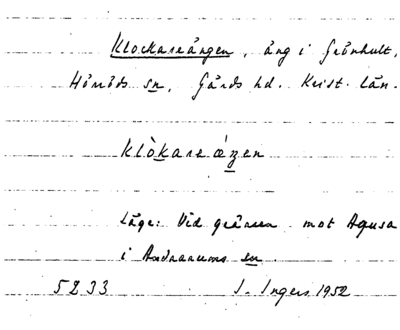 Klockareängen, äng i Grönhult,
Hörröds sn, Gärds hd. Krist. län.
klòkare ǽŋen
Läge: Vid gränsen mot Agusa
i Andrarums sn.
5233 I. Ingers 1952